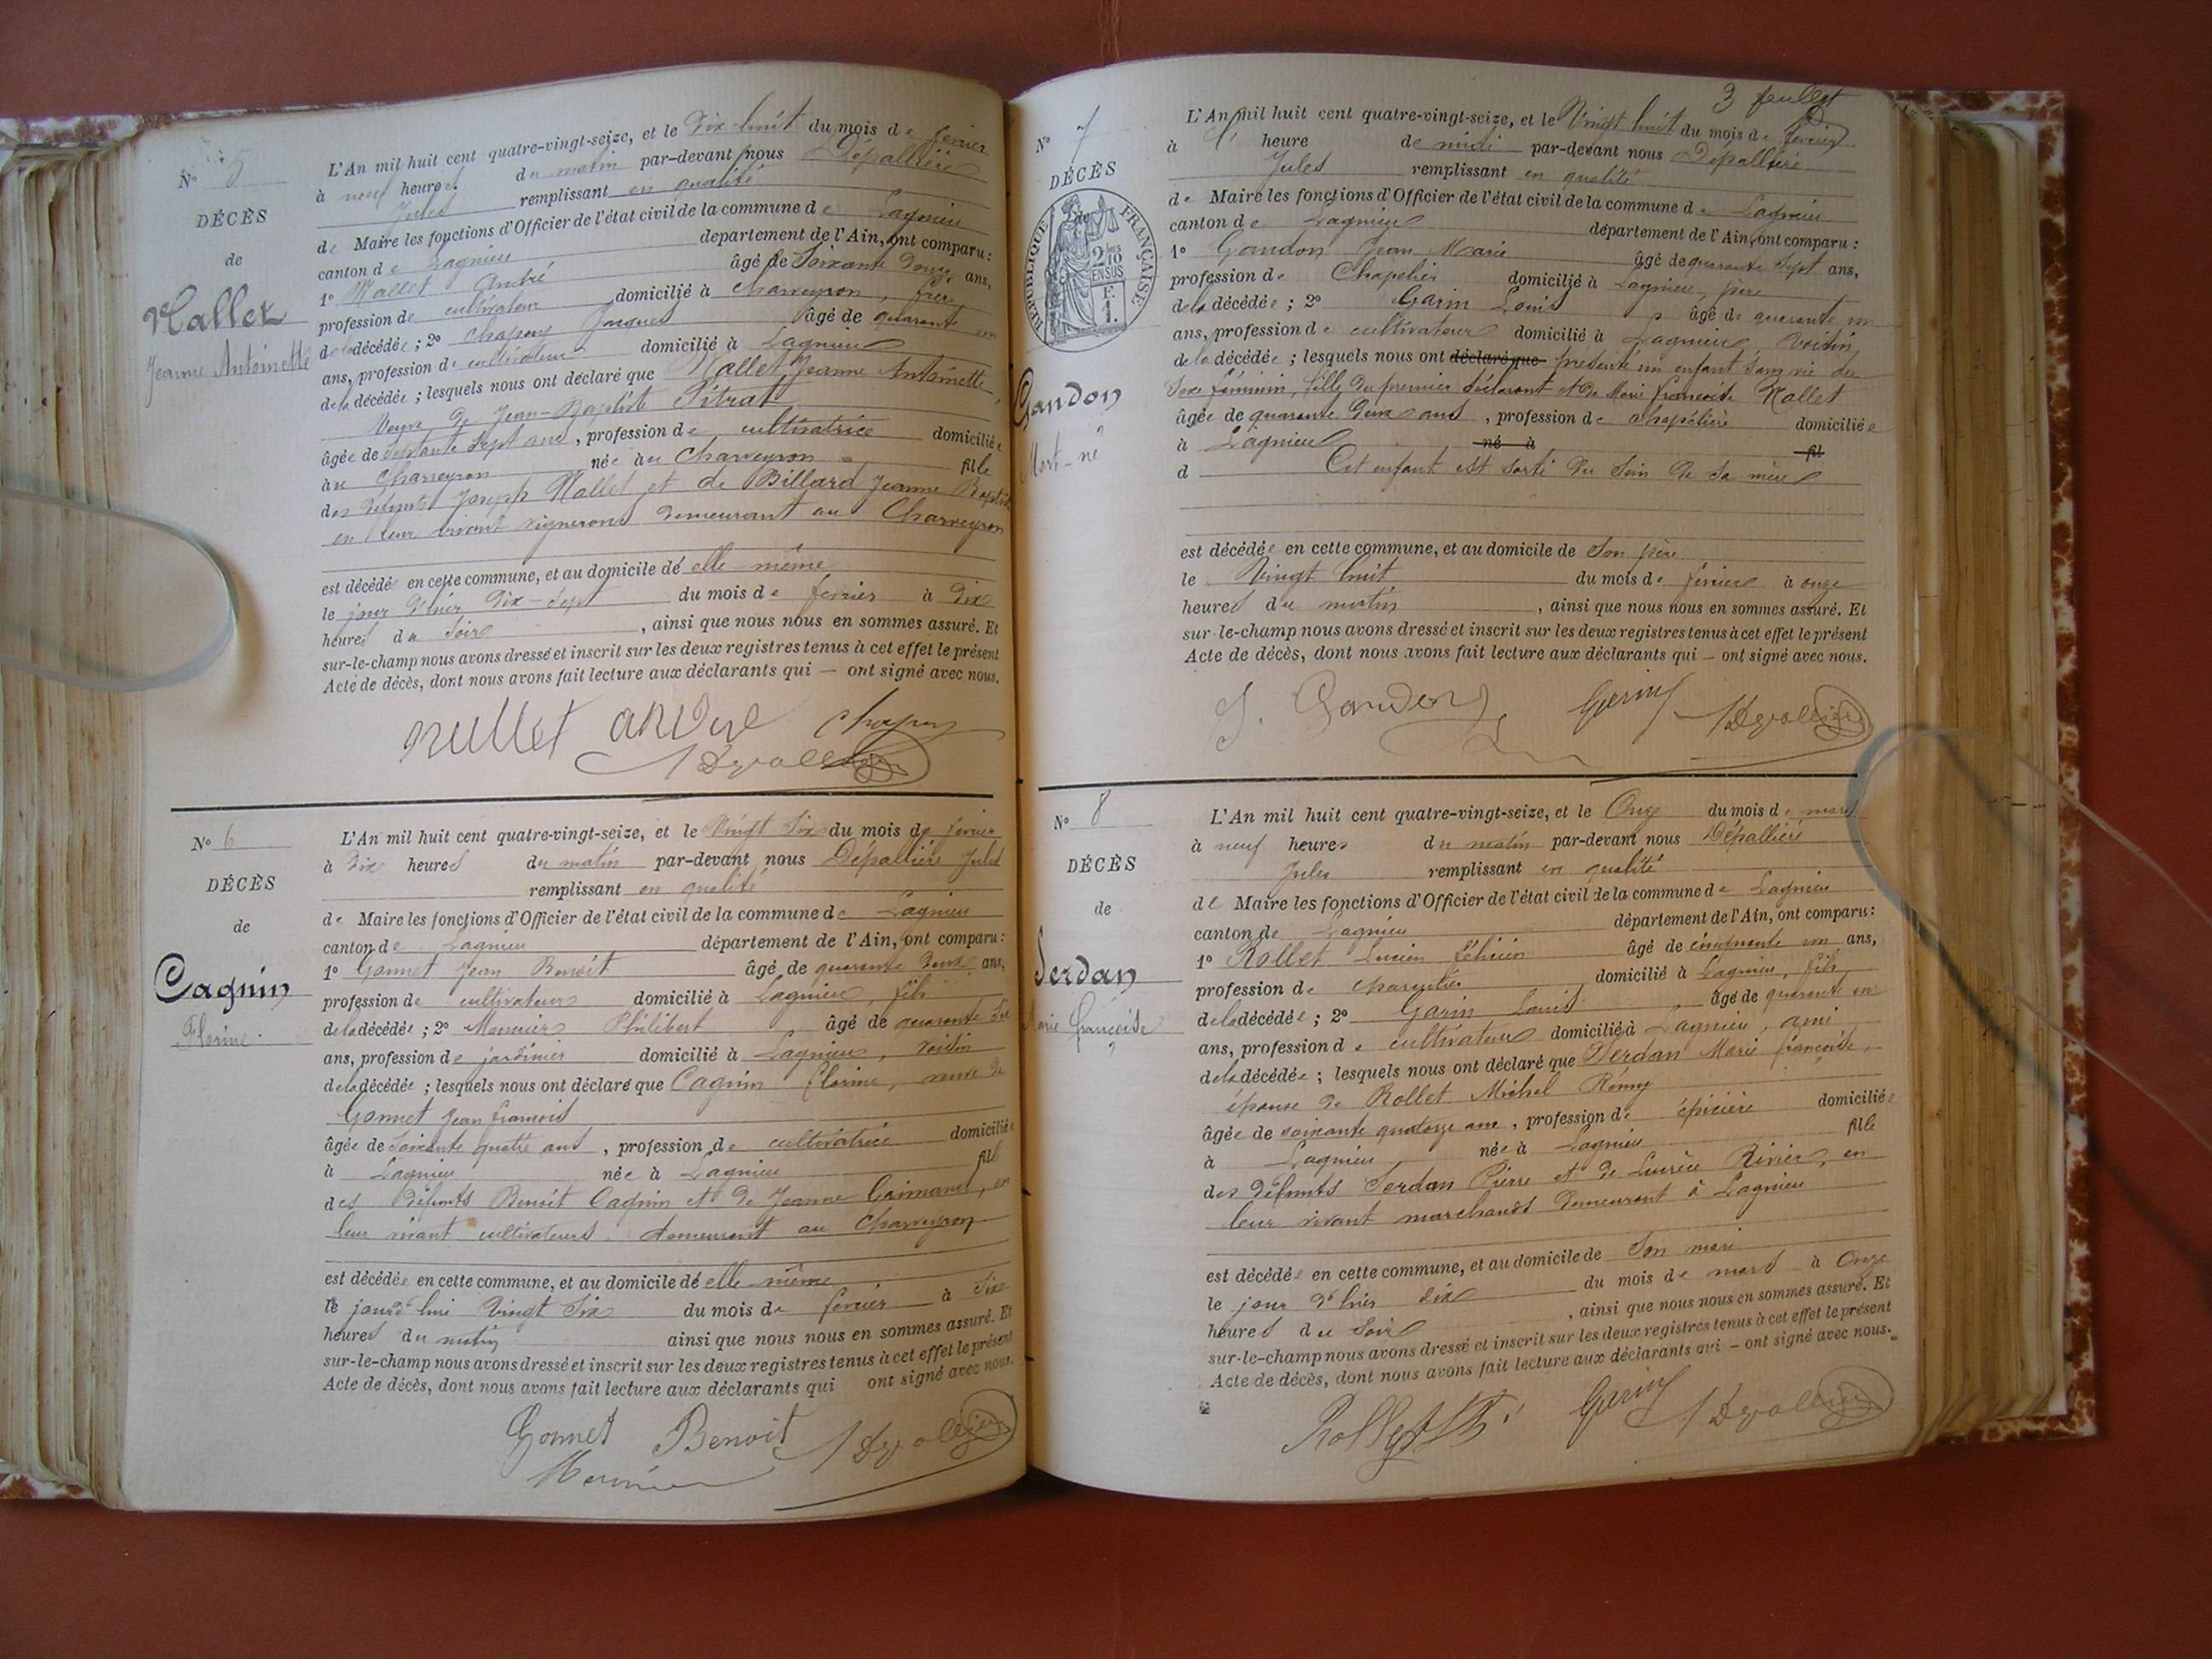 Nº 5
DÉCÈS
de
Nallet
Jeanne Antoinette
L'An mil huit cent quatre-vingt-seize, et le Dix-huit du mois de février
à neuf heures du matin par-devant nous Dépallière
Jules remplissant en qualité
de Maire les fonctions d'Officier de l'état civil de la commune de Lagnieu
canton de Lagnieu département de l'Ain, ont comparu :
1º Nallet André âgé de Soixante Douze ans,
profession de cultivateur domicilié à Charveyron, frère
de la décédée ; 2º Chapouy Jacques âgé de quarante un
ans, profession de cultivateur domicilié à Lagnieu
de la décédée ; lesquels nous ont déclaré que Nallet Jeanne Antoinette,
Veuve de Jean-Baptiste Sitrat
âgée de Septante Sept ans, profession de cultivatrice domiciliée
au Charveyron née au Charveyron fille
des défunts Joseph Nallet et de Billard Jeanne Baptiste
en leur vivant vignerons demeurant au Charveyron
est décédée en cette commune, et au domicile de elle même
le jour d'hier Dix-Sept du mois de février à Dix
heures du Soir , ainsi que nous nous en sommes assuré. Et
sur-le-champ nous avons dressé et inscrit sur les deux registres tenus à cet effet le présent
Acte de décès, dont nous avons fait lecture aux déclarants qui — ont signé avec nous.
nullet andre
Nº 6
DÉCÈS
de
Cagnin
Florine.
L'An mil huit cent quatre-vingt-seize, et le Vingt Six du mois de février
à Dix heures du matin par-devant nous Dépallière Jules
remplissant en qualité
de Maire les fonctions d'Officier de l'état civil de la commune de Lagnieu
canton de Lagnieu département de l'Ain, ont comparu :
1º Gonnet Jean Benoit âgé de quarante Deux ans,
profession de cultivateur domicilié à Lagnieu, fils
de la décédée ; 2º Meunier Philibert âgé de quarante Six
ans, profession de jardinier domicilié à Lagnieu, voisin
de la décédée ; lesquels nous ont déclaré que Cagnin Florine, veuve de
Gonnet Jean François
âgée de Soixante quatre ans, profession de cultivatrice domiciliée
à Lagnieu née à Lagnieu fille
des défunts Benoit Cagnin et de Jeanne Grimand, en
leur vivant cultivateurs demeurant au Charveyron
est décédée en cette commune, et au domicile de elle même
le jourd'hui Vingt Six du mois de février à Six
heures du matin ainsi que nous nous en sommes assuré. Et
sur-le-champ nous avons dressé et inscrit sur les deux registres tenus à cet effet le présent
Acte de décès, dont nous avons fait lecture aux déclarants qui ont signé avec nous.
Gonnet Benoit
Meunier
3 feuillet
Nº 7
DÉCÈS
de
RÉPUBLIQUE FRANÇAISE
Gandon
Mort-né
L'An mil huit cent quatre-vingt-seize, et le Vingt huit du mois de février
à 1 heure de midi par-devant nous Dépallière
Jules remplissant en qualité
de Maire les fonctions d'Officier de l'état civil de la commune de Lagnieu
canton de Lagnieu département de l'Ain, ont comparu :
1º Gandon Jean Marie âgé de quarante Sept ans,
profession de Chapelier domicilié à Lagnieu, père
de la décédée ; 2º Garin Louis âgé de quarante un
ans, profession de cultivateur domicilié à Lagnieu, voisin
de la décédée ; lesquels nous ont déclaré que présenté un enfant sans vie du
Sexe féminin, fille du premier déclarant et de Marie Françoise Nallet
âgée de quarante Deux ans, profession de chapelière domiciliée
à Lagnieu né à fil
d Cet enfant est sorti du Sein de Sa mère
est décédée en cette commune, et au domicile de Son père
le Vingt huit du mois de février à onze
heures du matin , ainsi que nous nous en sommes assuré. Et
sur-le-champ nous avons dressé et inscrit sur les deux registres tenus à cet effet le présent
Acte de décès, dont nous avons fait lecture aux déclarants qui — ont signé avec nous.
J. Gandon Garin
Nº 8
DÉCÈS
de
Serdan
Marie Françoise
L'An mil huit cent quatre-vingt-seize, et le Onze du mois de mars
à neuf heures du matin par-devant nous Dépallière
Jules remplissant en qualité
de Maire les fonctions d'Officier de l'état civil de la commune de Lagnieu
canton de Lagnieu département de l'Ain, ont comparu :
1º Rollet Lucien Félicien âgé de cinquante un ans,
profession de charcutier domicilié à Lagnieu, fils
de la décédée ; 2º Garin Louis âgé de quarante un
ans, profession de cultivateur domicilié à Lagnieu, ami
de la décédée ; lesquels nous ont déclaré que Serdan Marie Françoise,
épouse de Rollet Michel Rémy
âgée de soixante quatorze ans, profession de épicière domiciliée
à Lagnieu, née à Lagnieu fille
des défunts Serdan Pierre et de Lucrèce Rivier, en
leur vivant marchands demeurant à Lagnieu
est décédée en cette commune, et au domicile de Son mari
le jour d'hier dix du mois de mars à Onze
heures du Soir , ainsi que nous nous en sommes assuré. Et
sur-le-champ nous avons dressé et inscrit sur les deux registres tenus à cet effet le présent
Acte de décès, dont nous avons fait lecture aux déclarants qui — ont signé avec nous.
Garin